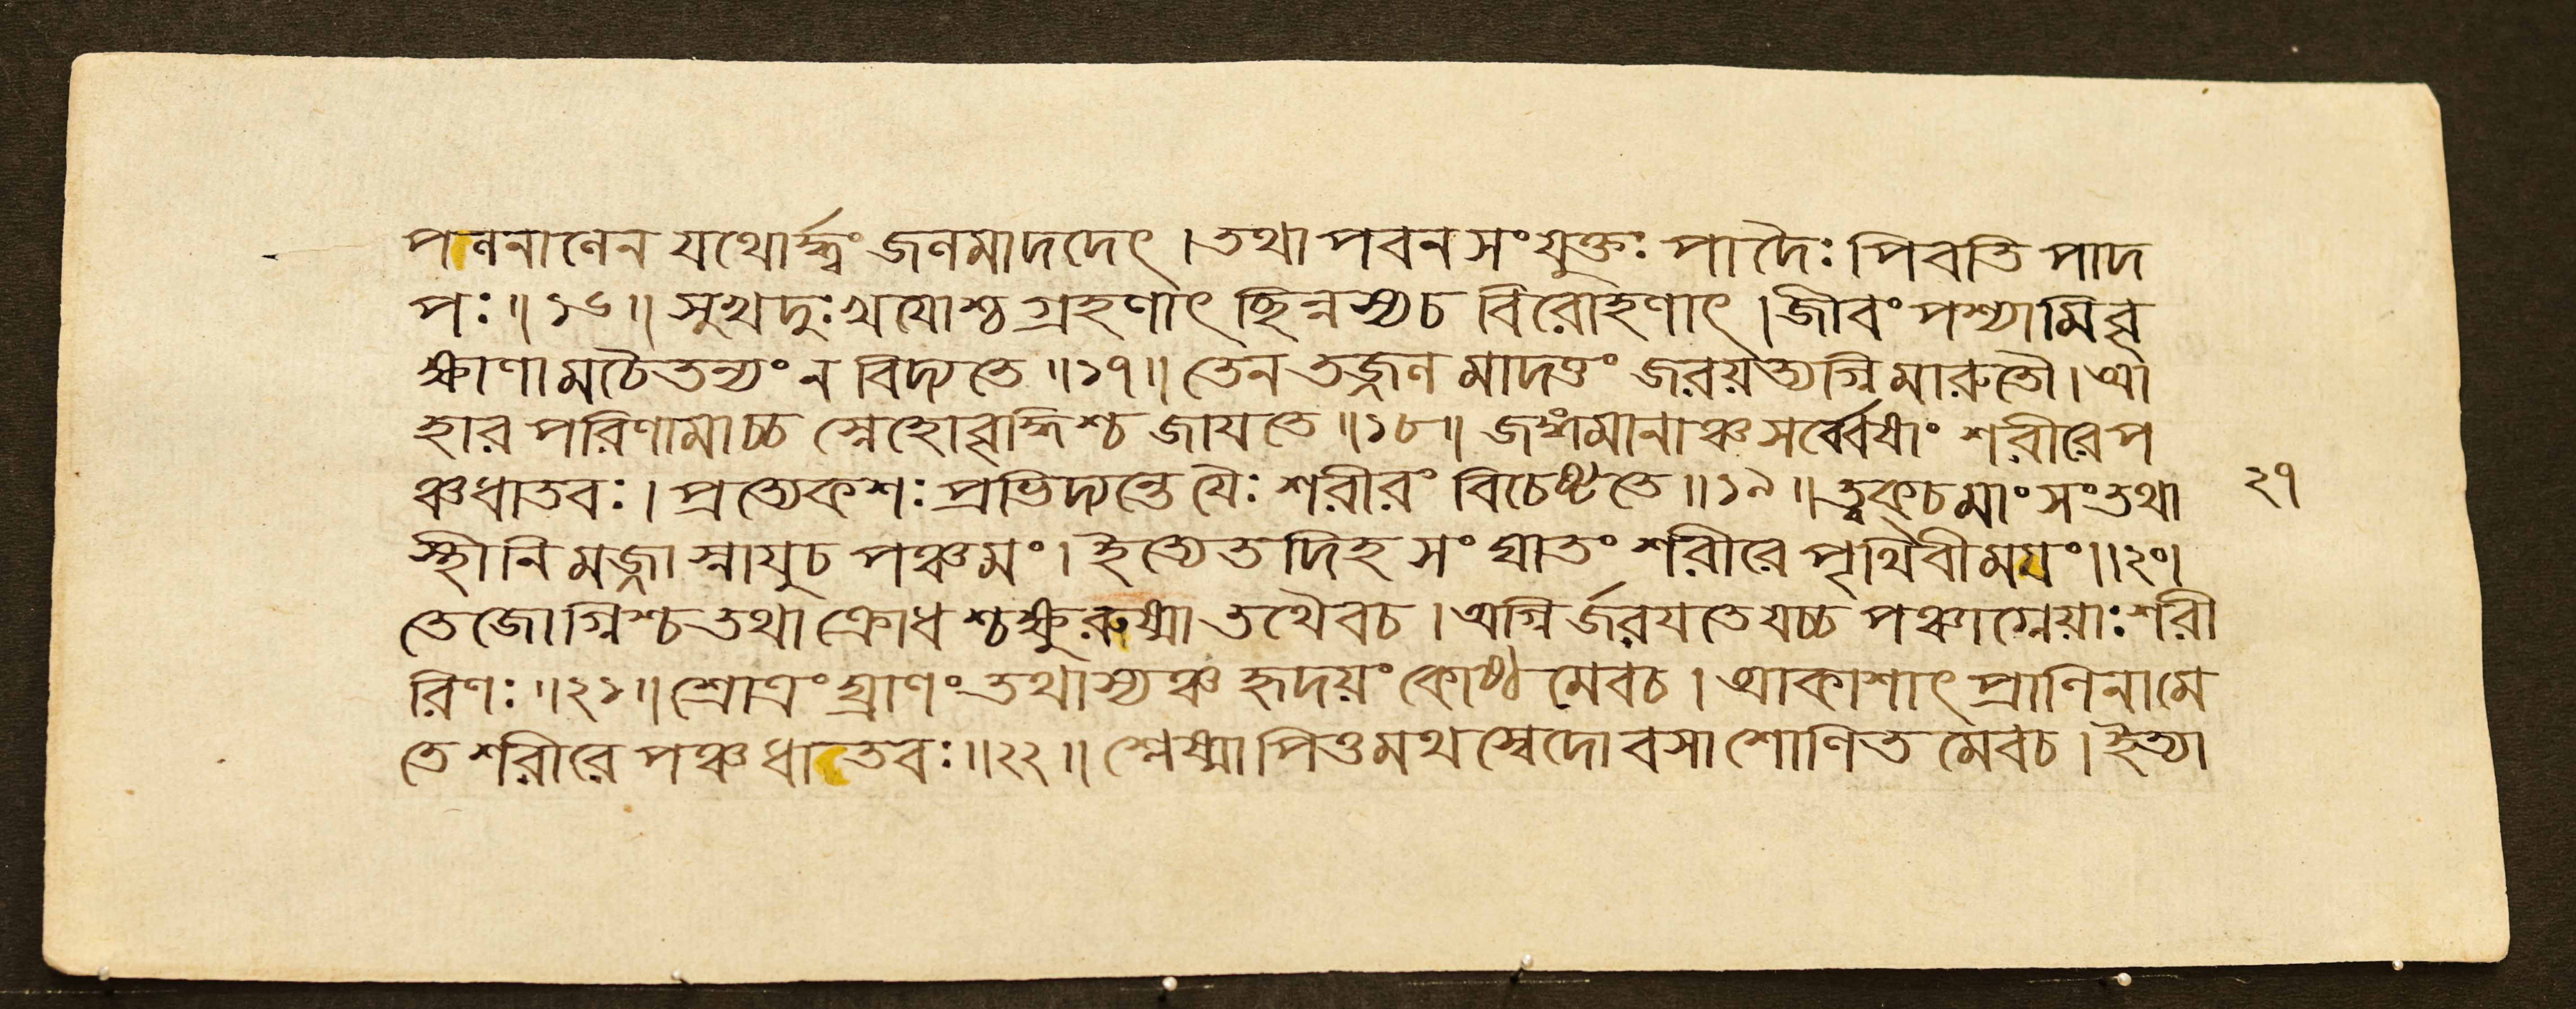 পলনালেন যথোর্দ্ধ্বং জলমাদদেৎ । তথা পবনসংযুক্তঃ পাদৈঃ পিবতি পাদ
পঃ ॥ ১৬ ॥ সুখদুঃখযোশ্চ গ্রহণাৎ ছিন্নস্যচ বিরোহণাৎ । জীবং পশ্যামি বৃ
ক্ষাণামচৈতন্যং ন বিদ্যতে ॥ ১৭ ॥ তেন তজ্জলমাদত্তং জরয়ত্যগ্নিমারুতৌ । আ
হার পরিণামাচ্চ স্নেহোবৃদ্ধিশ্চ জাযতে ॥ ১৮ ॥ জঙ্গমানাঞ্চ সর্ব্বেষাং শরীরে প
ঞ্চধাতবঃ । প্রত্যেকশঃ প্রভিদ্যন্তে যৈঃ শরীরং বিচেষ্টতে ॥ ১৯ ॥ ত্বক্চমাংসং তথা
স্থীনি মজ্জা স্নাযুচ পঞ্চমং । ইত্যেতদিহ সংঘাতং শরীরে পৃথিবীময়ং ॥ ২০ ।
তেজোগ্নিশ্চ তথা ক্রোধশ্চক্ষুরুষ্মা তথৈবচ । অগ্নির্জরযতে যচ্চ পঞ্চাগ্নেয়াঃ শরী
রিণঃ ॥ ২১ ॥ শ্রোত্রং ঘ্রাণং তথাস্যঞ্চ হৃদয়ং কোষ্ঠমেবচ । আকাশাৎ প্রাণিনামে
তে শরীরে পঞ্চ ধাতবঃ ॥ ২২ ॥ শ্লেষ্মা পিত্তমথ স্বেদো বসা শোণিতমেবচ । ইত্যা
২৭